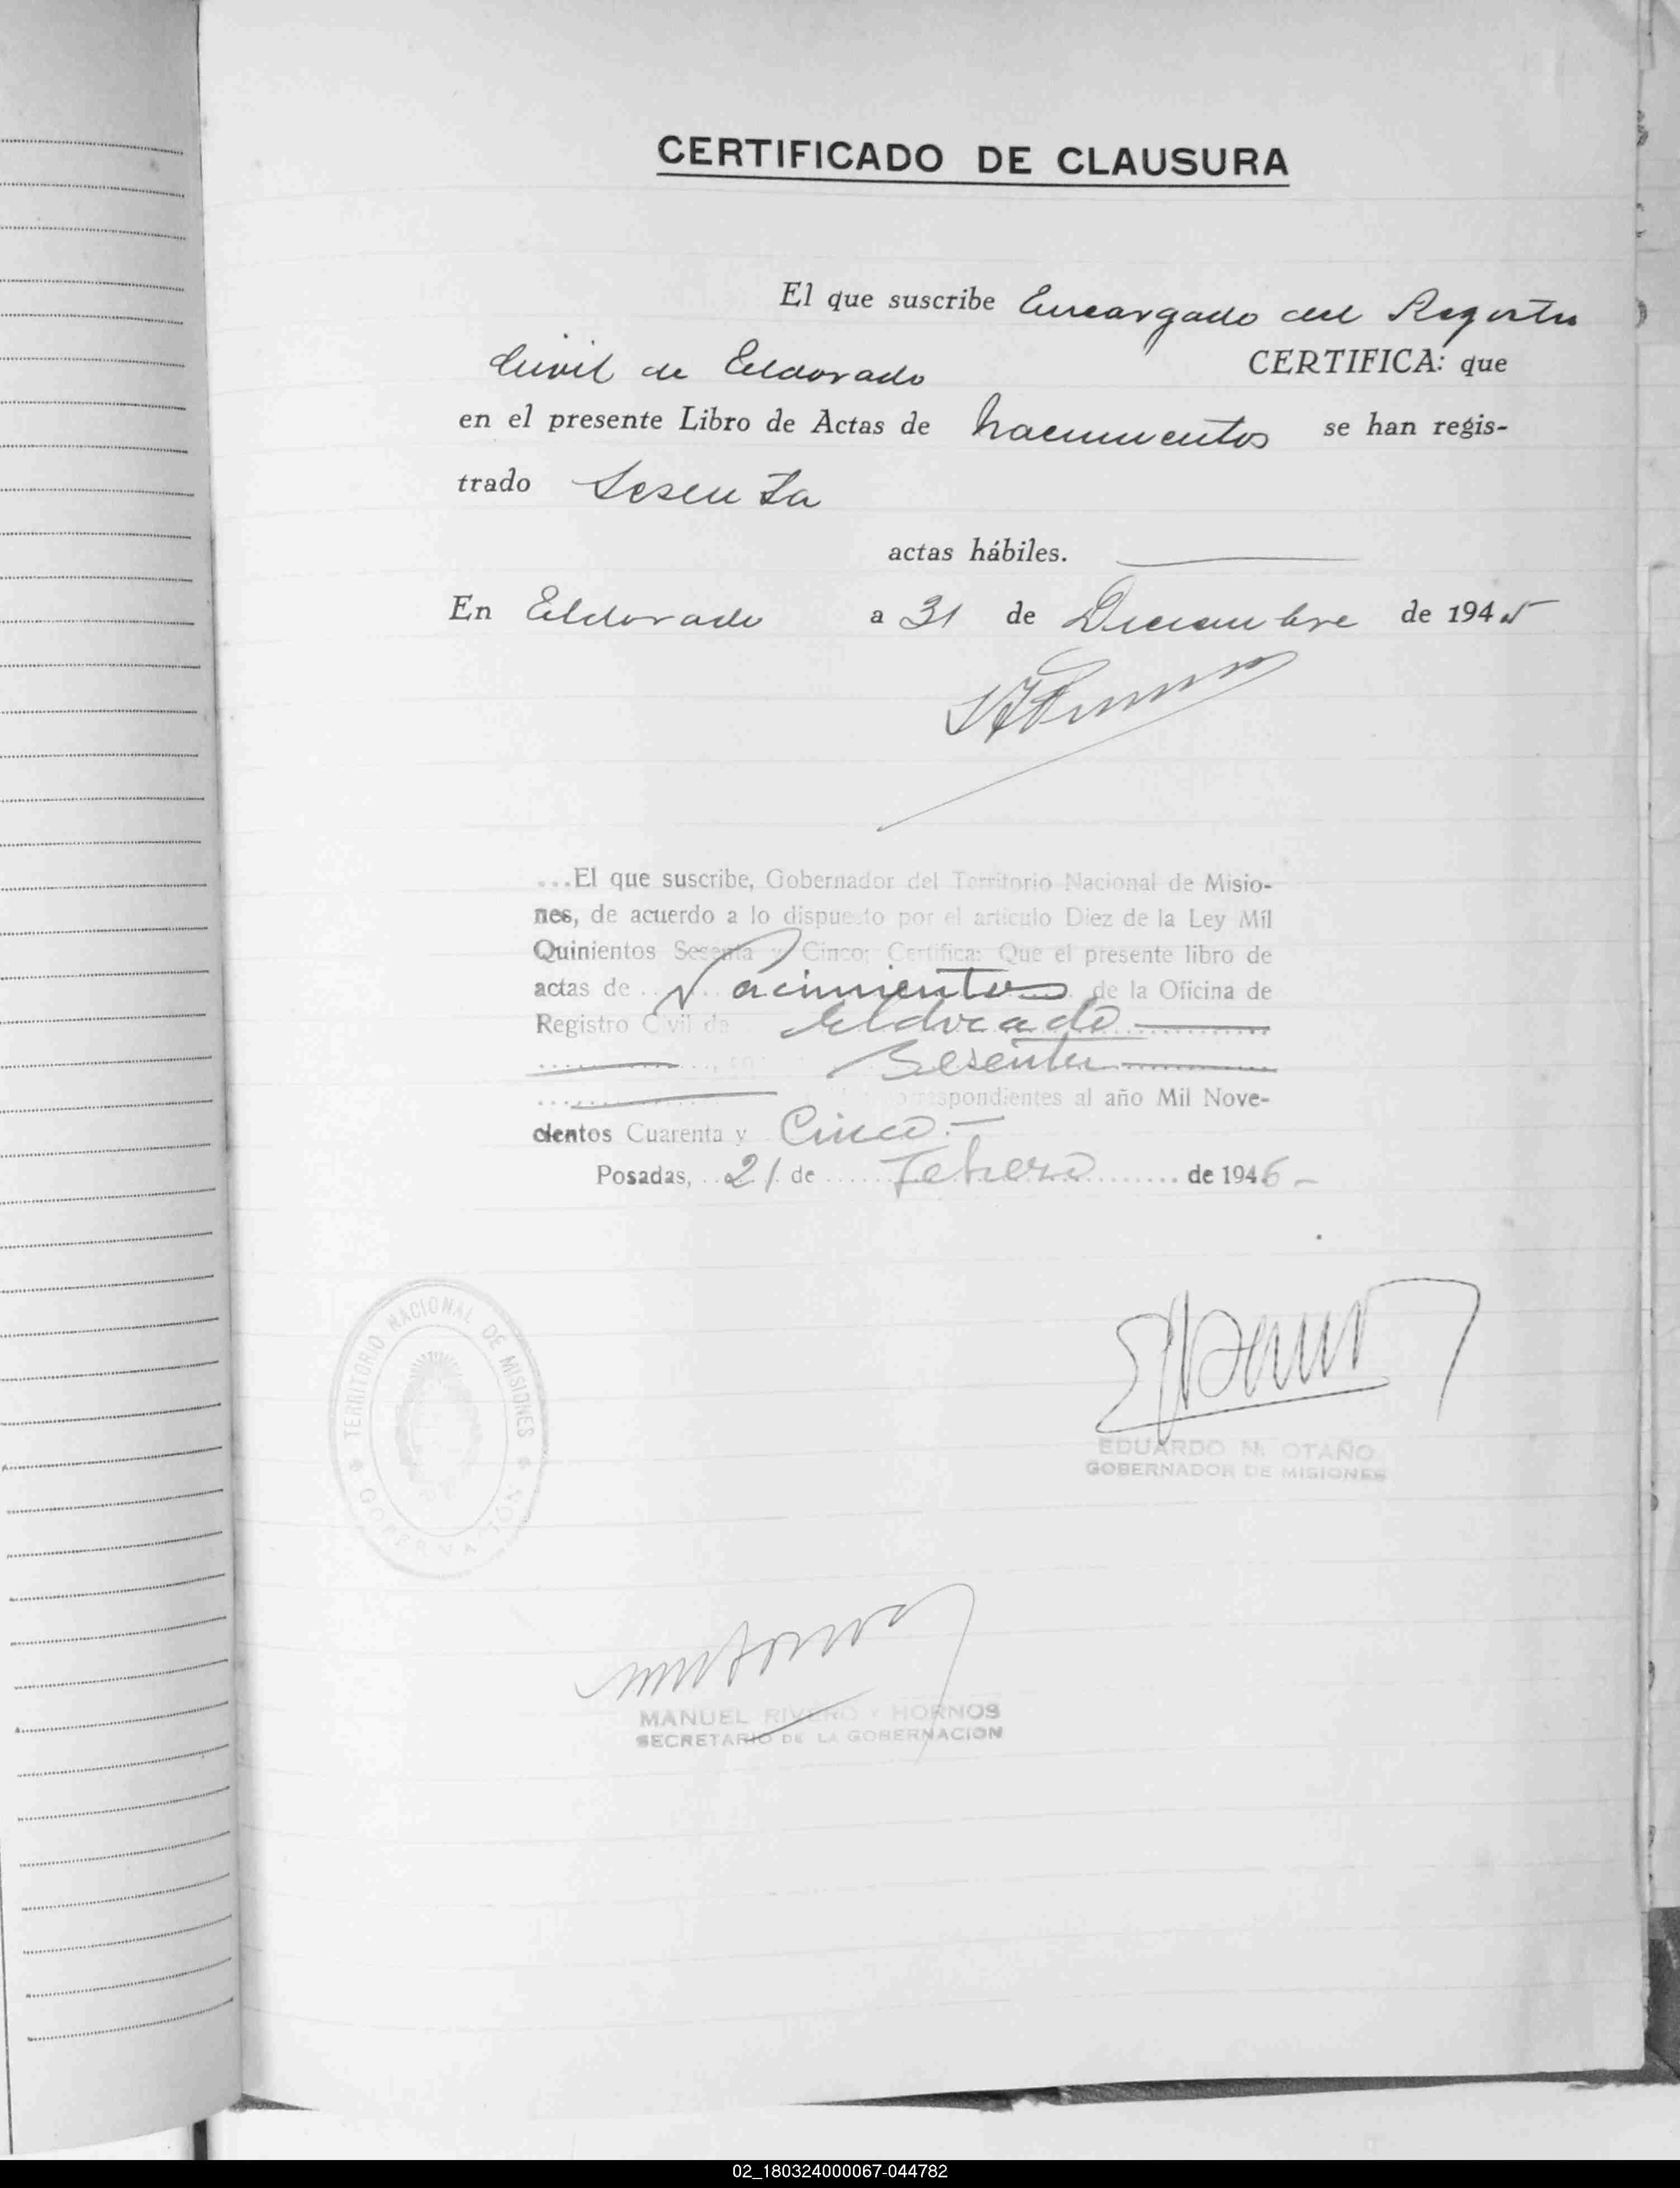 CERTIFICADO DE CLAUSURA
El que suscribe Encargado del Registro
Civil de Eldorado CERTIFICA: que
en el presente Libro de Actas de Nacimientos se han regis-
trado Sesenta
actas hábiles.
En Eldorado a 31 de Diciembre de 1945
...El que suscribe, Gobernador del Territorio Nacional de Misio-
nes, de acuerdo a lo dispuesto por el artículo Diez de la Ley Mil
Quinientos Sesenta y Cinco; Certifica: Que el presente libro de
actas de Nacimientos de la Oficina de
Registro Civil de Eldorado
Sesenta
correspondientes al año Mil Nove-
cientos Cuarenta y Cinco.-
Posadas, 21 de Febrero de 1946-
TERRITORIO NACIONAL DE MISIONES
GOBERNACION
EDUARDO N. OTAÑO
GOBERNADOR DE MISIONES
MANUEL RIVERO Y HORNOS
SECRETARIO DE LA GOBERNACION
02_180324000067-044782